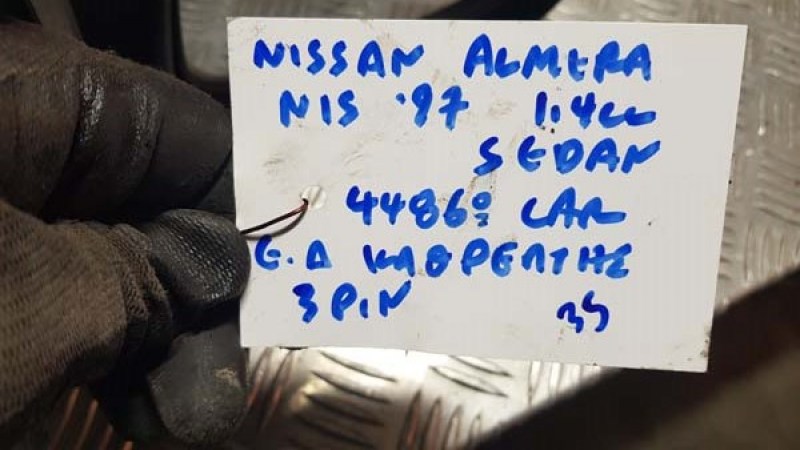 NISSAN ALMERA
NIS '97 1.4cc
SEDAN
4486º CAR
Ε.Δ ΚΑΘΡΕΠΤΗΣ
3 PIN 35